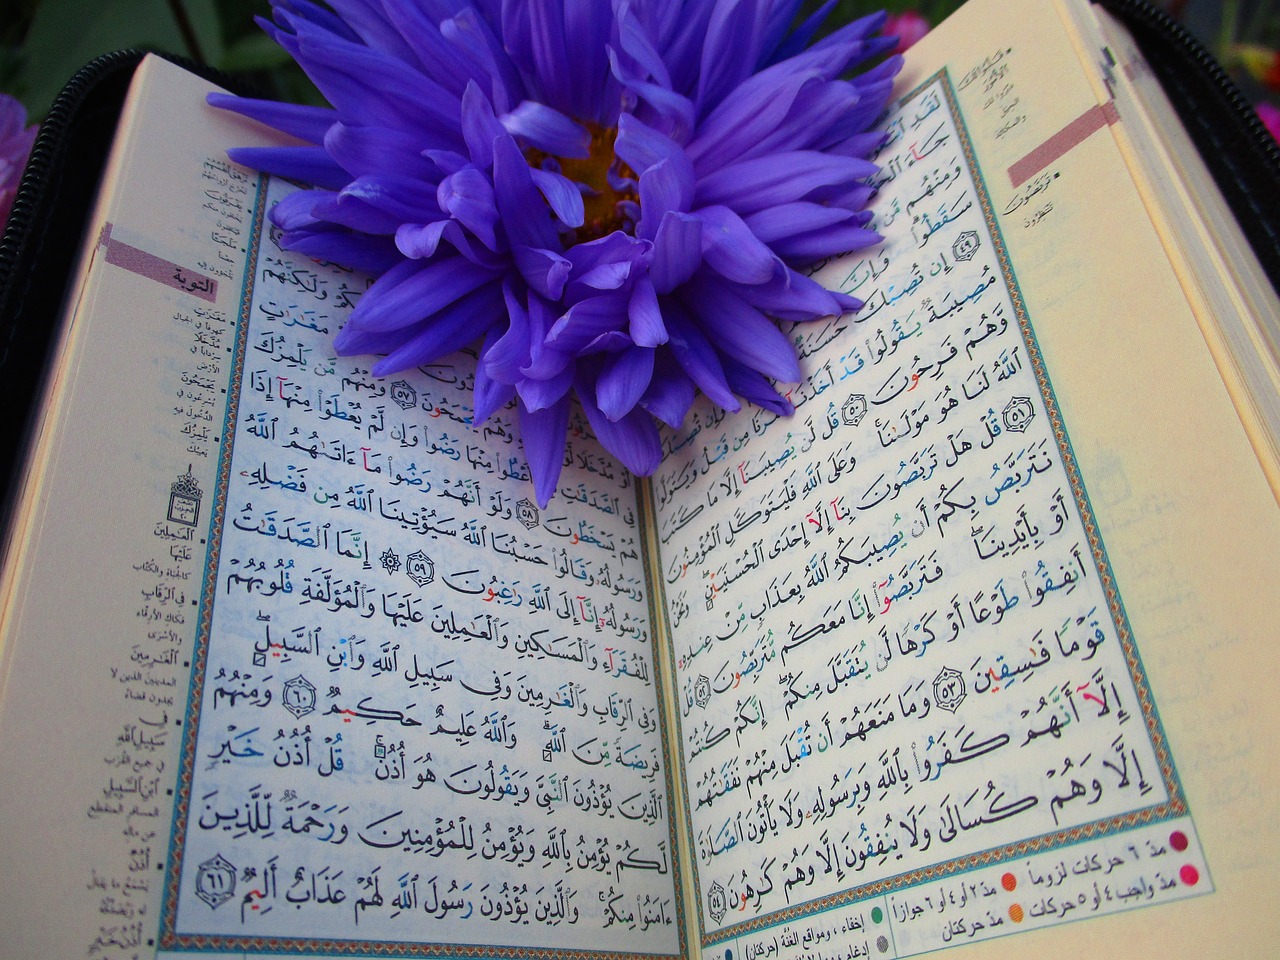 لَقَدِ
جَآءَ
وَمِنْهُم مَّن
سَقَطُوا۟ وَإِنَّ
٤٩ إِن تُصِبْكَ حَسَنَةٌ
مُصِيبَةٌ يَقُولُوا۟ قَدْ أَخَذْنَآ أَمْرَنَا مِن قَبْلُ وَيَتَوَلَّوا۟
وَّهُمْ فَرِحُونَ ٥٠ قُل لَّن يُصِيبَنَآ إِلَّا مَا كَتَبَ
ٱللَّهُ لَنَا هُوَ مَوْلَىٰنَا ۚ وَعَلَى ٱللَّهِ فَلْيَتَوَكَّلِ ٱلْمُؤْمِنُونَ
٥١ قُلْ هَلْ تَرَبَّصُونَ بِنَآ إِلَّآ إِحْدَى ٱلْحُسْنَيَيْنِ ۖ وَنَحْنُ
نَتَرَبَّصُ بِكُمْ أَن يُصِيبَكُمُ ٱللَّهُ بِعَذَابٍ مِّنْ عِندِهِۦٓ
أَوْ بِأَيْدِينَا ۖ فَتَرَبَّصُوٓا۟ إِنَّا مَعَكُم مُّتَرَبِّصُونَ ٥٢ قُلْ
أَنفِقُوا۟ طَوْعًا أَوْ كَرْهًا لَّن يُتَقَبَّلَ مِنكُمْ ۖ إِنَّكُمْ كُنتُمْ
قَوْمًا فَـٰسِقِينَ ٥٣ وَمَا مَنَعَهُمْ أَن تُقْبَلَ مِنْهُمْ نَفَقَـٰتُهُمْ
إِلَّآ أَنَّهُمْ كَفَرُوا۟ بِٱللَّهِ وَبِرَسُولِهِۦ وَلَا يَأْتُونَ ٱلصَّلَوٰةَ
إِلَّا وَهُمْ كُسَالَىٰ وَلَا يُنفِقُونَ إِلَّا وَهُمْ كَـٰرِهُونَ ٥٤
تَرَبَّصُونَ
تنتظرون
مدّ ٦ حركات لزوماً
مدّ ٢ أو ٤ أو ٦ جوازاً
إخفاء ، ومواقع الغُنَّة (حركتان)
مدّ واجب ٤ أو ٥ حركات
مدّ حركتان
وَلَـٰكِنَّهُمْ
مَغَـٰرَٰتٍ
أَوْ مُدَّخَلًا وَهُمْ يَجْمَحُونَ ٥٧ وَمِنْهُم مَّن يَلْمِزُكَ
فِى ٱلصَّدَقَـٰتِ فَإِنْ أُعْطُوا۟ مِنْهَا رَضُوا۟ وَإِن لَّمْ يُعْطَوْا۟ مِنْهَآ إِذَا
هُمْ يَسْخَطُونَ ٥٨ وَلَوْ أَنَّهُمْ رَضُوا۟ مَآ ءَاتَىٰهُمُ ٱللَّهُ
وَرَسُولُهُۥ وَقَالُوا۟ حَسْبُنَا ٱللَّهُ سَيُؤْتِينَا ٱللَّهُ مِن فَضْلِهِۦ
وَرَسُولُهُۥٓ إِنَّآ إِلَى ٱللَّهِ رَٰغِبُونَ ٥٩ ۞ إِنَّمَا ٱلصَّدَقَـٰتُ
لِلْفُقَرَآءِ وَٱلْمَسَـٰكِينِ وَٱلْعَـٰمِلِينَ عَلَيْهَا وَٱلْمُؤَلَّفَةِ قُلُوبُهُمْ
وَفِى ٱلرِّقَابِ وَٱلْغَـٰرِمِينَ وَفِى سَبِيلِ ٱللَّهِ وَٱبْنِ ٱلسَّبِيلِ ۖ
فَرِيضَةً مِّنَ ٱللَّهِ ۗ وَٱللَّهُ عَلِيمٌ حَكِيمٌ ٦٠ وَمِنْهُمُ
ٱلَّذِينَ يُؤْذُونَ ٱلنَّبِىَّ وَيَقُولُونَ هُوَ أُذُنٌ ۚ قُلْ أُذُنُ خَيْرٍ
لَّكُمْ يُؤْمِنُ بِٱللَّهِ وَيُؤْمِنُ لِلْمُؤْمِنِينَ وَرَحْمَةٌ لِّلَّذِينَ
ءَامَنُوا۟ مِنكُمْ ۚ وَٱلَّذِينَ يُؤْذُونَ رَسُولَ ٱللَّهِ لَهُمْ عَذَابٌ أَلِيمٌ ٦١
التوبة
مَغَـٰرَٰتٍ
مُدَّخَلًا
يَجْمَحُونَ
يَلْمِزُكَ
يعيبك
ٱلْعَـٰمِلِينَ عَلَيْهَا
فِى ٱلرِّقَابِ
ٱلْغَـٰرِمِينَ
فِى سَبِيلِ ٱللَّهِ
ٱبْنِ ٱلسَّبِيلِ
أُذُنٌ
أُذُنُ خَيْرٍ